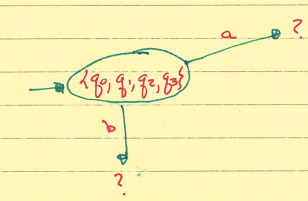 a ?
{q0, q1, q2, q3}
b
?